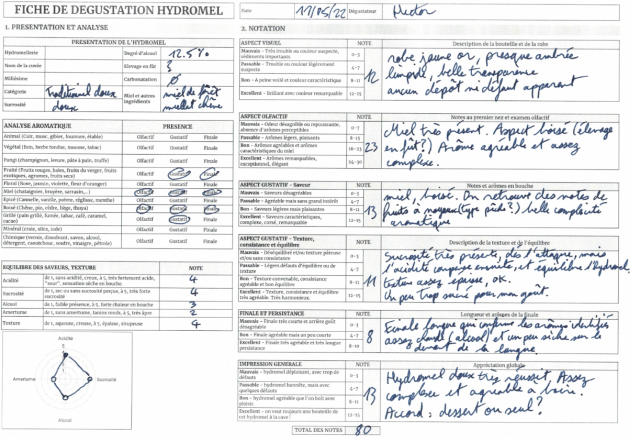 FICHE DE DEGUSTATION HYDROMEL
Date 17/05/22 Dégustateur Hector
1. PRESENTATION ET ANALYSE
PRESENTATION DE L'HYDROMEL
Hydromellerie
Degré d'alcool 12.5%
Nom de la cuvée
Elevage en fût ?
Millésime
Carbonatation Ø
Catégorie Traditionnel doux
Miel et autres ingrédients miel de forêt miellat chêne
Sucrosité doux
ANALYSE AROMATIQUE PRESENCE
Animal (Cuir, musc, gibier, fourrure, étable) Olfactif Gustatif Finale
Végétal (foin, herbe tondue, mousse, tabac) Olfactif Gustatif Finale
Fungi (champignon, levure, pâte à pain, truffe) Olfactif Gustatif Finale
Fruité (Fruits rouges, baies, fruits du verger, fruits exotiques, agrumes, fruits secs) Olfactif Gustatif Finale
Floral (Rose, jasmin, violette, fleur d'oranger) Olfactif Gustatif Finale
Miel (châtaignier, bruyère, sarrasin,...) Olfactif Gustatif Finale
Epicé (Cannelle, vanille, poivre, réglisse, menthe) Olfactif Gustatif Finale
Boisé (Chêne, pin, cèdre, liège, thuya) Olfactif Gustatif Finale
Grillé (pain grillé, fumée, tabac, café, caramel, cacao) Olfactif Gustatif Finale
Minéral (craie, silex, iode) Olfactif Gustatif Finale
Chimique (vernis, dissolvant, savon, alcool, détergent, caoutchouc, soudre, vinaigre, pétrole) Olfactif Gustatif Finale
EQUILIBRE DES SAVEURS, TEXTURE NOTE
Acidité de 1, sans acidité, creux, à 5, très fortement acide, "sour", sensation sèche en bouche 4
Sucrosité de 1, sec ou sans sucrosité perçue, à 5, très forte sucrosité 4
Alcool de 1, faible présence, à 5, forte chaleur en bouche 3
Amertume de 1, sans amertume, tanins ronds, à 5, très âpre 2
Texture de 1, aqueuse, creuse, à 5, épaisse, sirupeuse 4
Acidité
5
Amertume
Sucrosité
Alcool
2. NOTATION
ASPECT VISUEL NOTE Description de la bouteille et de la robe
Mauvais - Très trouble ou couleur suspecte, sédiments importants 0-3
Passable - Trouble ou couleur légèrement suspecte 4-7
Bon - A peine voilé et couleur caractéristique 8-11
Excellent - Brillant avec couleur remarquable 12-15
12
robe jaune or, presque ambrée
limpide, belle transparence
aucun dépôt ni défaut apparent
ASPECT OLFACTIF NOTE Notes au premier nez et examen olfactif
Mauvais - Odeur désagréable ou repoussante, absence d'arômes perceptibles 0-7
Passable - Arômes légers, plaisants 8-15
Bon - Arômes agréables et arômes caractéristiques du miel 16-23
Excellent - Arômes remarquables, exceptionnel, élégant 24-30
23
Miel très présent. Aspect boisé (élevage
en fût?) Arôme agréable et assez
complexe.
ASPECT GUSTATIF - Saveur NOTE Notes et arômes en bouche
Mauvais - Saveurs désagréables 0-3
Passable - Agréable mais sans grand intérêt 4-7
Bon - Saveurs légères mais plaisantes 8-11
Excellent - Saveurs caractéristiques, complexe, corsé, remarquable 12-15
13
miel, boisé. On retrouve des notes de
fruits à noyau (type pêche?) belle complexité
aromatique
ASPECT GUSTATIF - Texture, consistance et équilibre NOTE Description de la texture et de l'équilibre
Mauvais - Déséquilibré et/ou texture pâteuse et/ou sans consistance 0-3
Passable - Légers défauts d'équilibre ou de texture 4-7
Bon - Texture convenable, consistance agréable et bon équilibre 8-11
Excellent - Texture, consistance et équilibre très agréable. Très harmonieux. 12-15
11
Sucrosité très présente, dès l'attaque, mais
l'acidité compense ensuite, et équilibre l'hydromel.
texture assez épaisse, ok.
Un peu trop sucré pour mon goût.
FINALE ET PERSISTANCE NOTE Longueur et arômes de la finale
Mauvais - Finale très courte et arrière goût désagréable 0-3
Passable - Finale un peu courte 4-7
Excellent - Finale très agréable et très longue persistance 8-10
8
Finale longue qui confirme des arômes identifiés
assez chaude (alcool) et un peu sèche sur le
devant de la langue.
IMPRESSION GENERALE NOTE Appréciation globale
Mauvais - hydromel déplaisant, avec trop de défauts 0-3
Passable - hydromel buvable, mais avec quelques défauts 4-7
Bon - hydromel agréable que l'on boit avec plaisir 8-11
Excellent - on veut toujours une bouteille de cet hydromel à la cave ! 12-15
13
Hydromel doux très réussit. Assez
complexe et agréable à boire.
Accord : dessert ou seul?
TOTAL DES NOTES 80